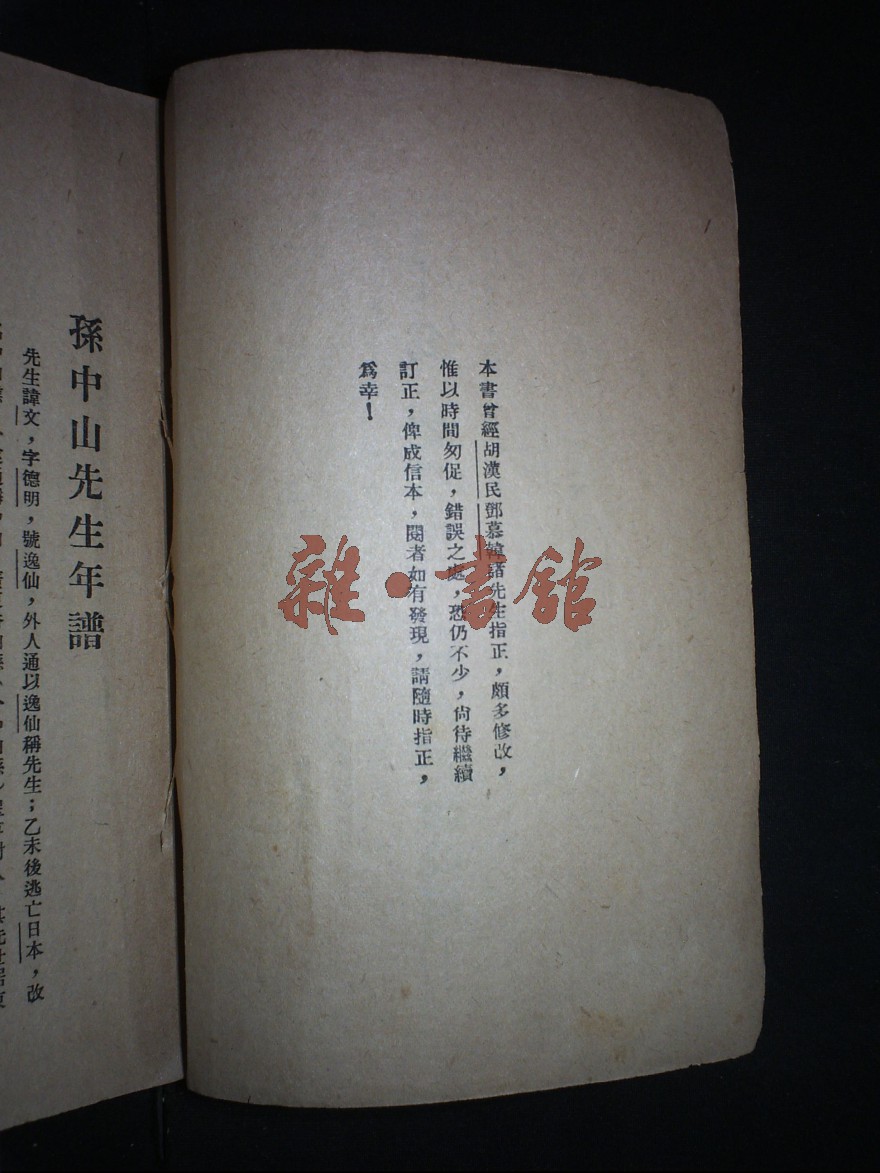 本書曾經胡漢民鄧慕韓諸先生指正，頗多修改，
惟以時間匆促，錯誤之處，恐仍不少，尙待繼續
訂正，俾成信本，閱者如有發現，請隨時指正，
爲幸！
孫中山先生年譜
先生諱文，字德明，號逸仙，外人通以逸仙稱先生；乙未後逃亡日本，改
雜·書館